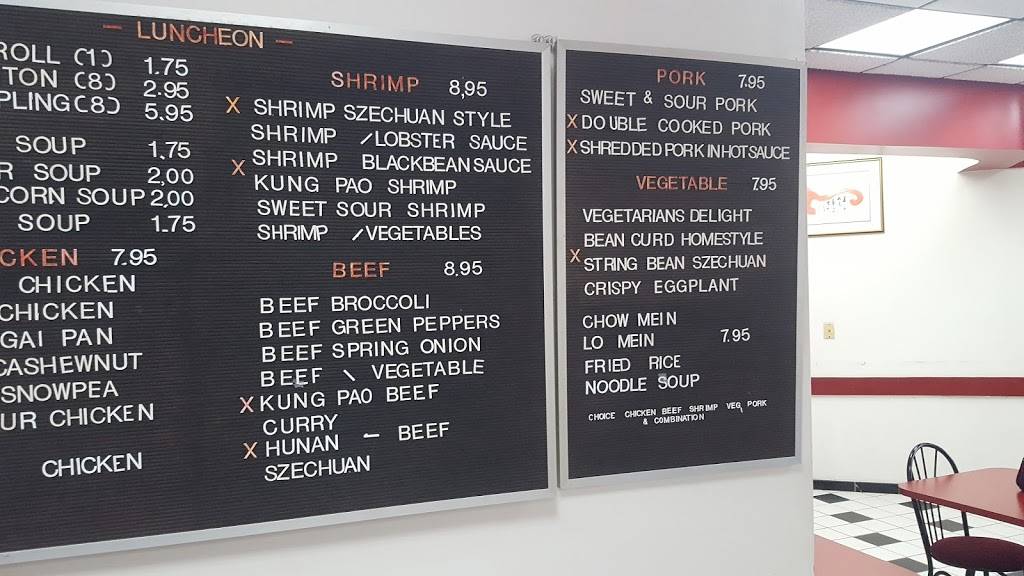 — LUNCHEON —
ROLL (1) 1.75
TON (8) 2.95
PLING (8) 5.95
SOUP 1.75
R SOUP 2,00
CORN SOUP 2,00
SOUP 1.75
CKEN 7.95
CHICKEN
CHICKEN
GAI PAN
CASHEWNUT
SNOWPEA
UR CHICKEN
CHICKEN
SHRIMP 8,95
X SHRIMP SZECHUAN STYLE
SHRIMP /LOBSTER SAUCE
X SHRIMP BLACKBEAN SAUCE
KUNG PAO SHRIMP
SWEET SOUR SHRIMP
SHRIMP /VEGETABLES
BEEF 8,95
BEEF BROCCOLI
BEEF GREEN PEPPERS
BEEF SPRING ONION
BEEF \ VEGETABLE
X KUNG PAO BEEF
CURRY
X HUNAN — BEEF
SZECHUAN
PORK 7.95
SWEET & SOUR PORK
X DOUBLE COOKED PORK
X SHREDDED PORK IN HOT SAUCE
VEGETABLE 7.95
VEGETARIANS DELIGHT
BEAN CURD HOMESTYLE
X STRING BEAN SZECHUAN
CRISPY EGGPLANT
CHOW MEIN
LO MEIN 7.95
FRIED RICE
NOODLE SOUP
CHOICE CHICKEN BEEF SHRIMP VEG, PORK
& COMBINATION